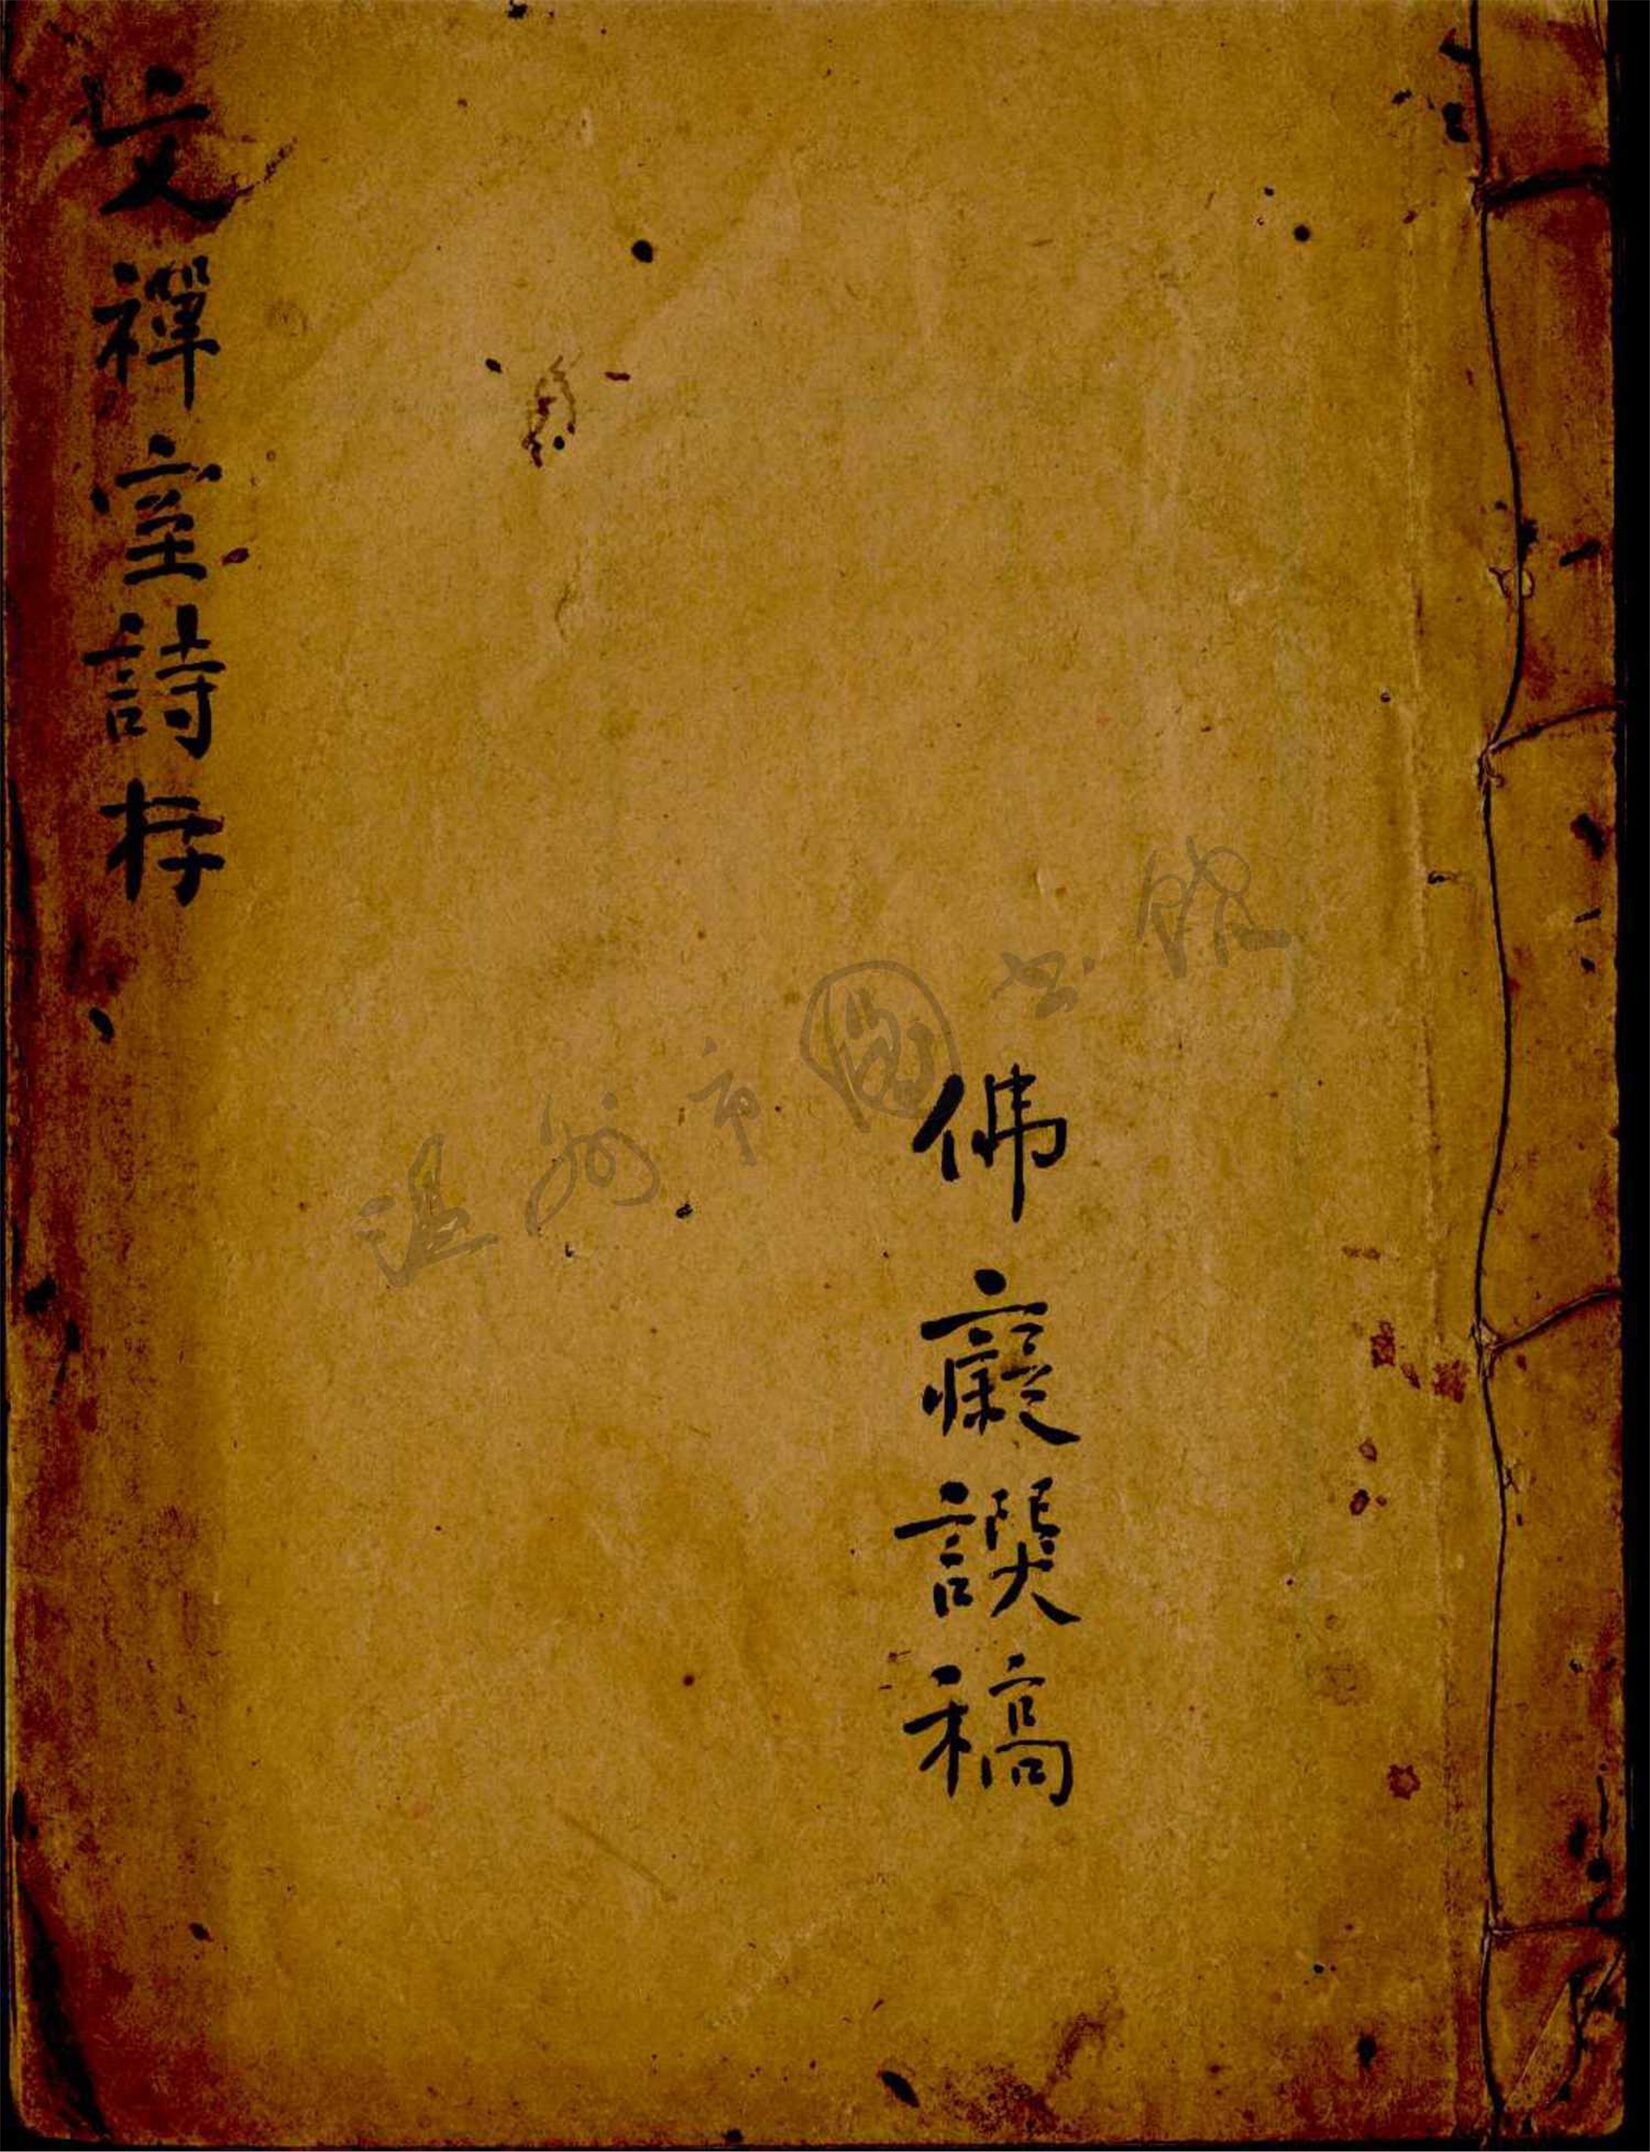 文禪室詩存
佛癡譔稿
温州市圖書館